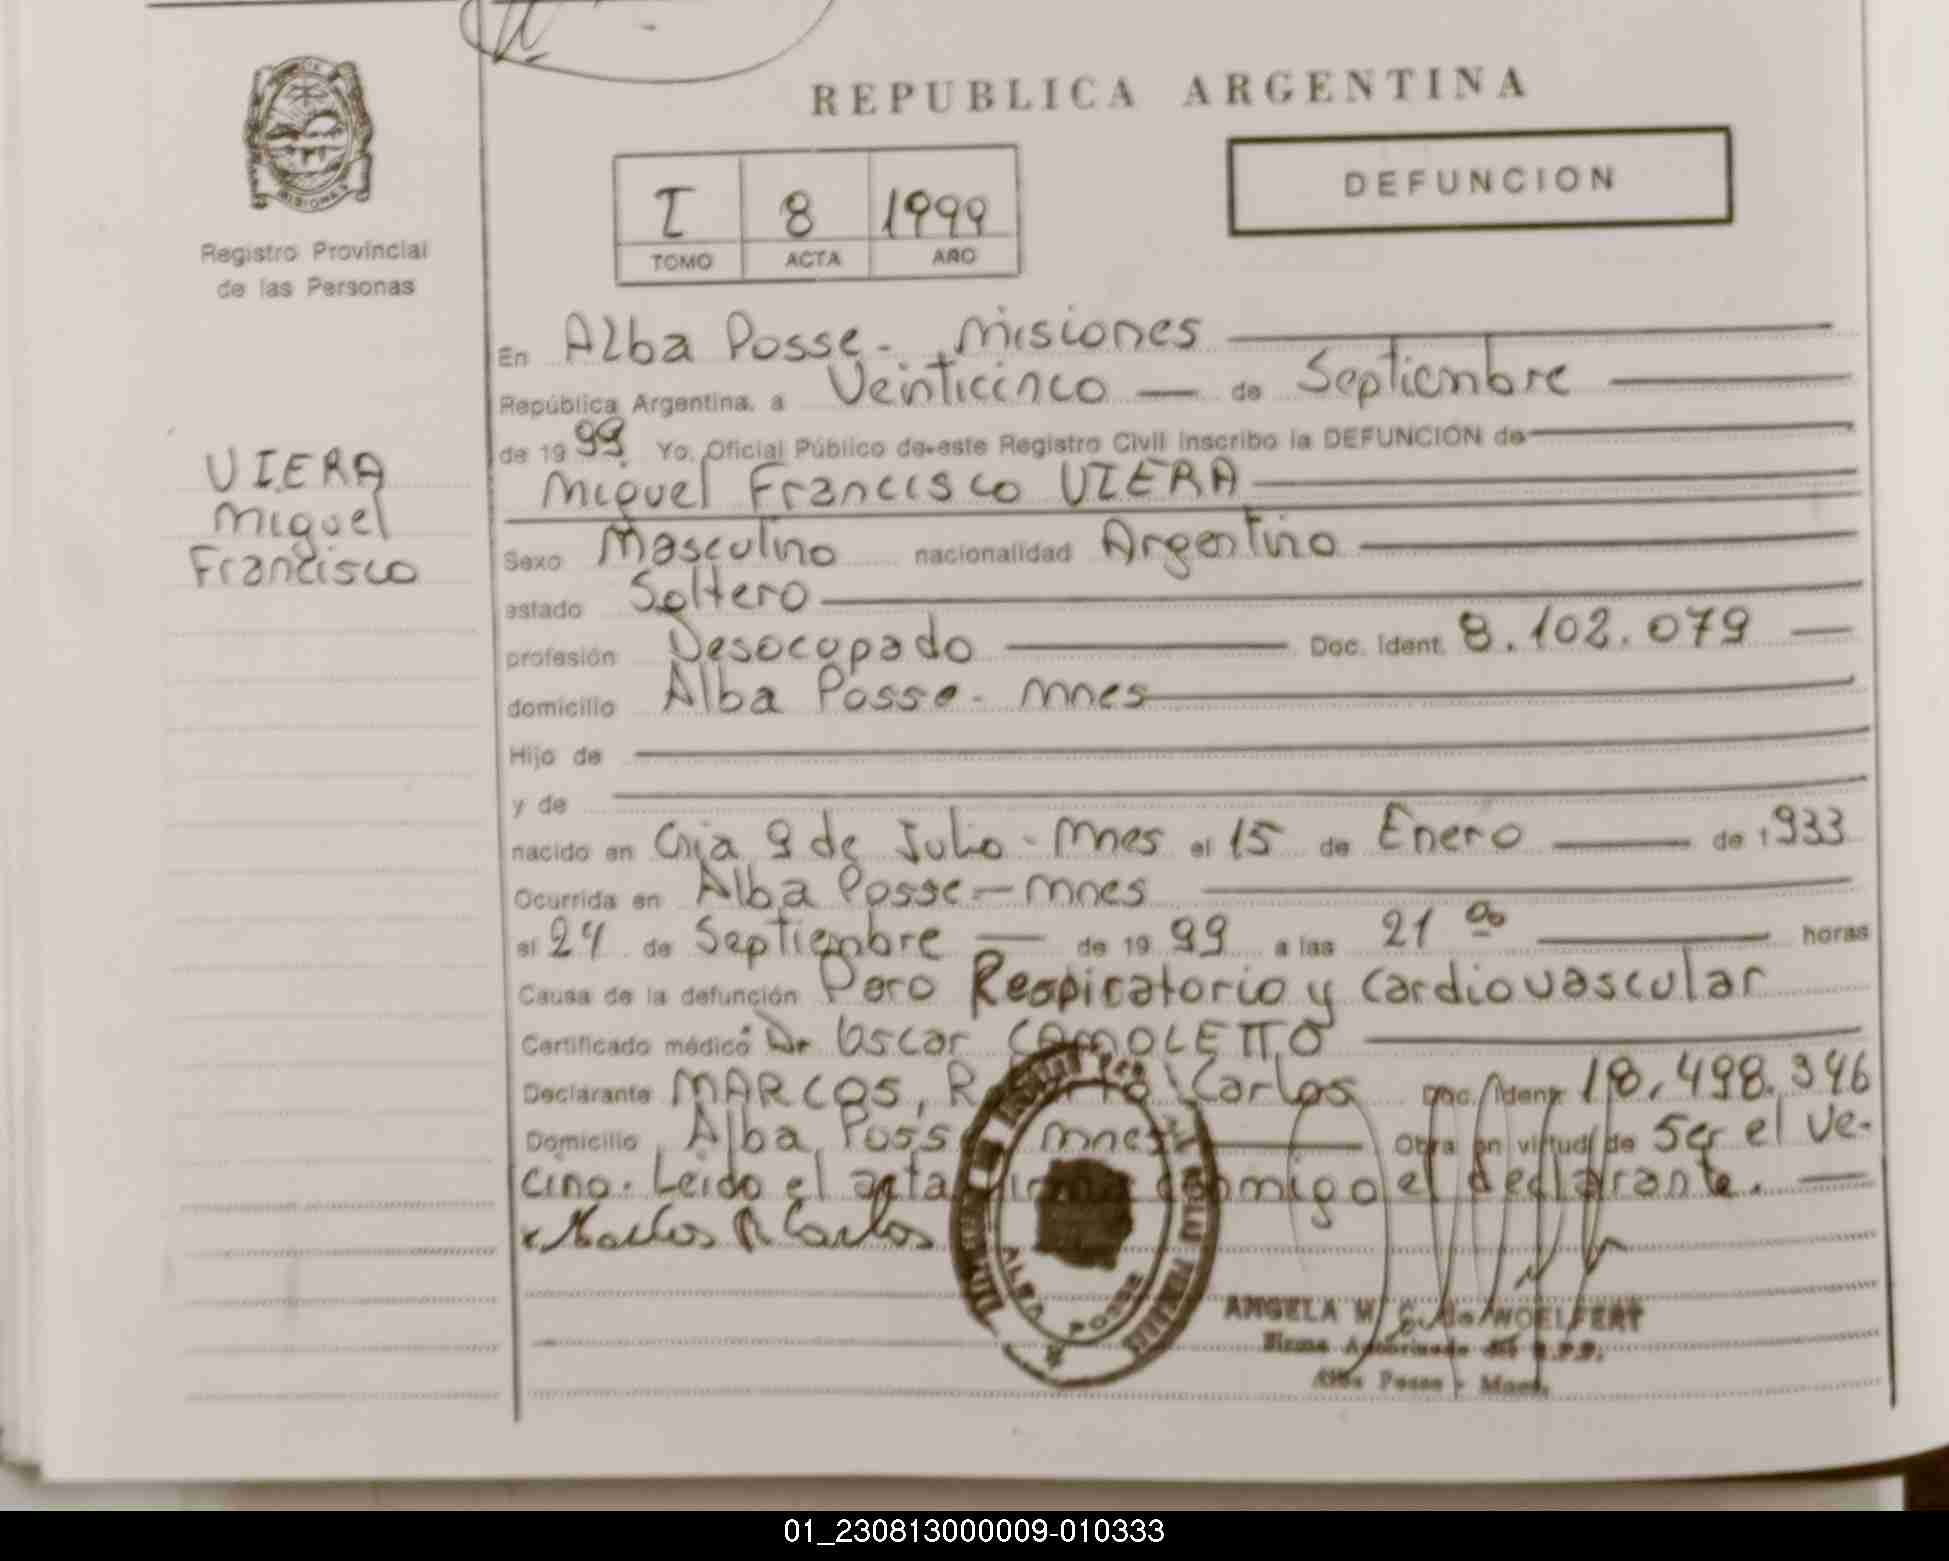 REPUBLICA ARGENTINA
DEFUNCION
I 8 1999
TOMO ACTA AÑO
MISIONES
Registro Provincial
de las Personas
VIERA
Miguel
Francisco
En Alba Posse - Misiones
República Argentina, a Veinticinco de Septiembre
de 1999. Yo, Oficial Público de este Registro Civil inscribo la DEFUNCIÓN de
Miguel Francisco VIERA
Sexo Masculino nacionalidad Argentino
estado Soltero
profesión Desocupado Doc. Ident. 8.102.079
domicilio Alba Posse - Mnes
Hijo de
y de
nacido en Cnia 9 de Julio - Mnes el 15 de Enero de 1933
Ocurrida en Alba Posse - Mnes
el 24 de Septiembre de 1999 a las 21 00 horas
Causa de la defunción Paro Respiratorio y cardiovascular
Certificado médico Dr Oscar COMOLETTO
Declarante MARCOS, Carlos Doc. Ident. 18.498.346
Domicilio Alba Posse Mnes Obra en virtud de Ser el ve-
cino. Leido el acta firma conmigo el declarante.
Marcos R Carlos
ALBA POSSE
ANGELA M. G. de WOELFERT
Firma Autorizada del R.P.P.
Alba Posse - Mnes.
01_230813000009-010333